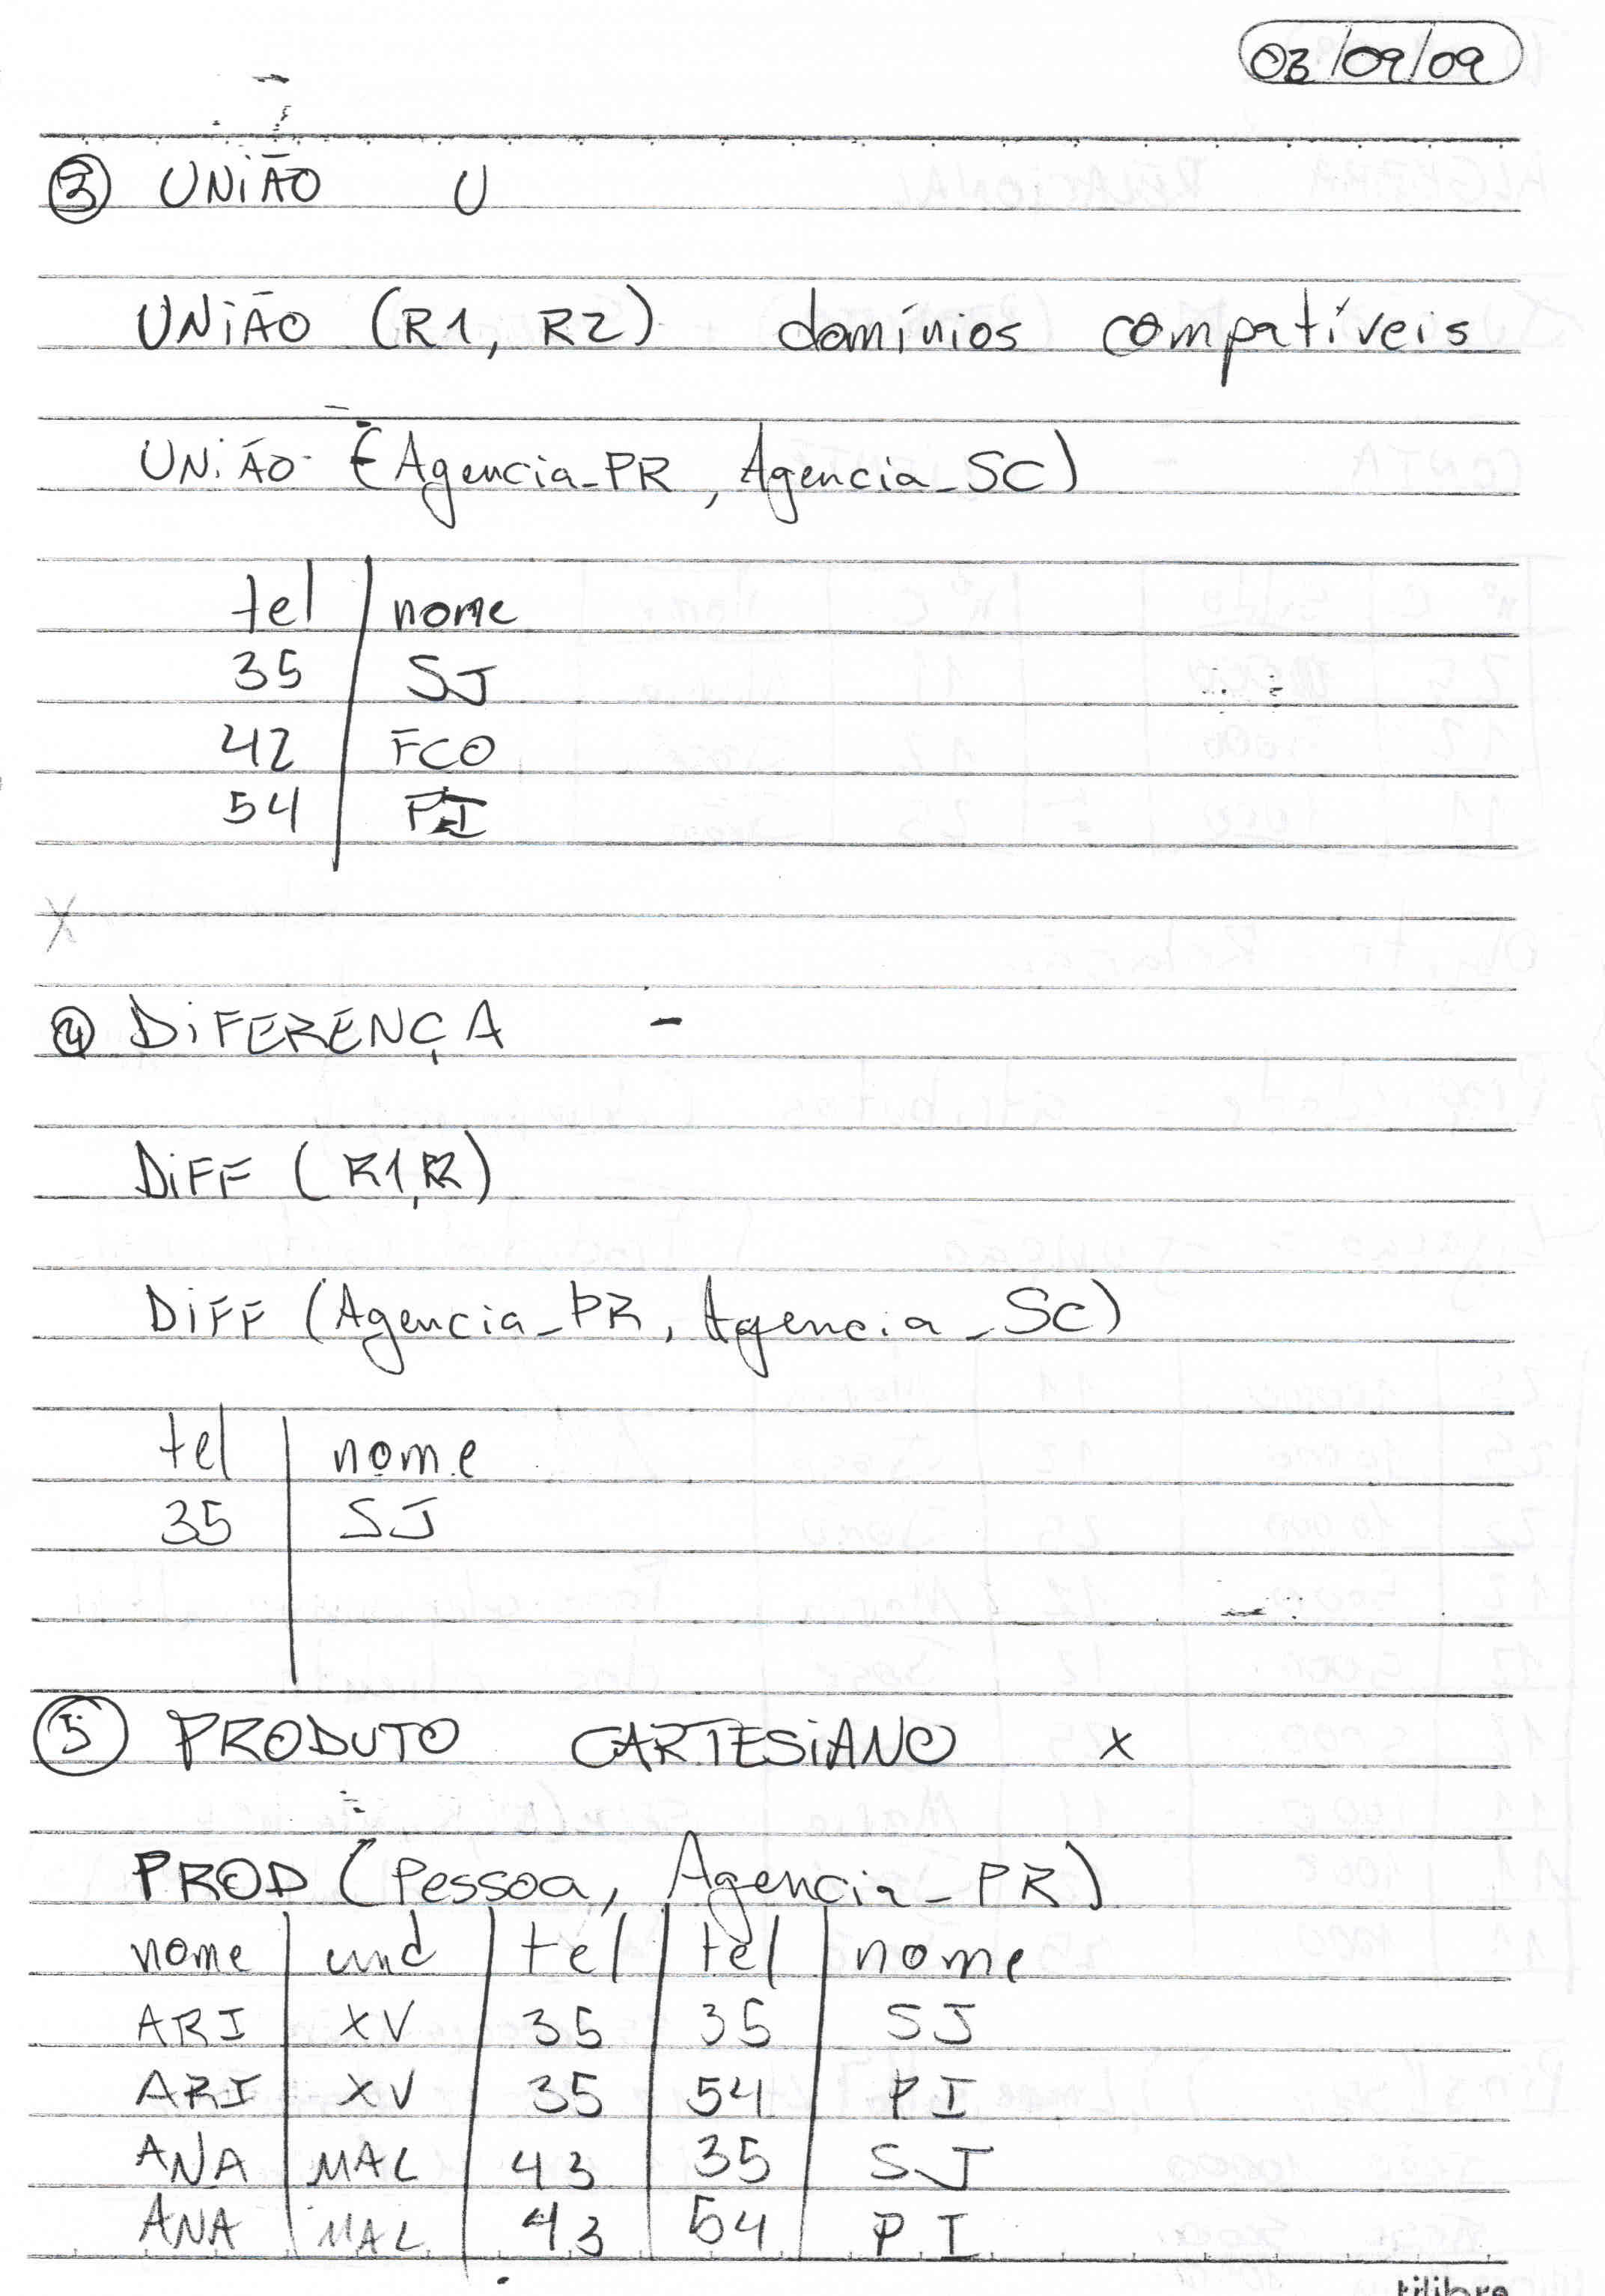 03/09/09
3 UNIÃO U
UNIÃO (R1, R2) domínios compatíveis
UNIÃO (Agencia_PR, Agencia_SC)
tel nome
35 SJ
42 FCO
54 PI
X
4 DIFERENÇA -
DIFF (R1,R2)
DIFF (Agencia_PR, Agencia_SC)
tel nome
35 SJ
5 PRODUTO CARTESIANO x
PROD (Pessoa, Agencia_PR)
nome und tel tel nome
ARI XV 35 35 SJ
ARI XV 35 54 PI
ANA MAL 43 35 SJ
ANA MAL 43 54 PI
tilibra